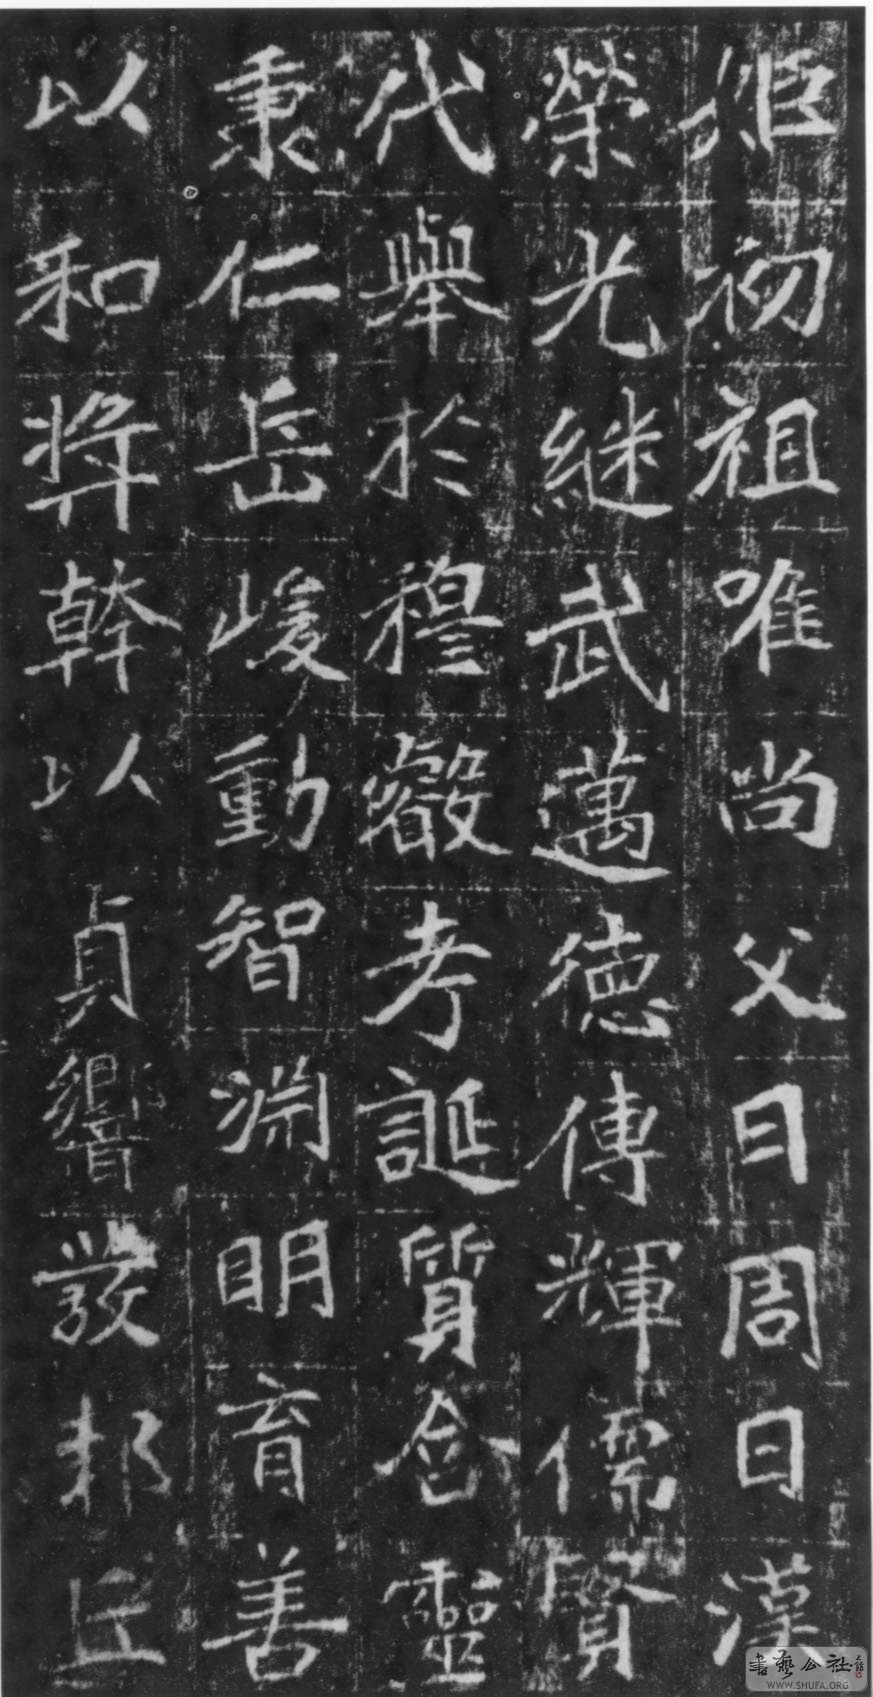 姬初祖唯尚父曰周曰漢
榮光継武邁德傳輝儒賢
代舉於穆叡考誕質含靈
秉仁岳峻動智淵明育善
以和獎幹以貞響發邦丘
書藝公社
WWW.SHUFA.ORG